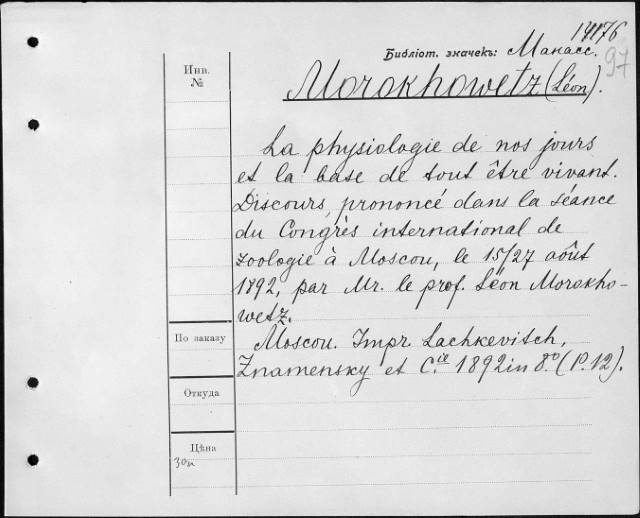 14176
Библіот. значекъ: Манасс.
97
Инв.
№
Morokhowetz (Léon).
La physiologie de nos jours
et la base de tout être vivant.
Discours, prononcé dans la séance
du Congrès international de
zoologie à Moscou, le 15/27 aôut
1892, par Mr. le prof. Léon Morokho-
wetz.
По заказу
Moscou. Impr. Lachkevitch,
Znamensky et C.ie 1892 in 8.º (P. 12).
Откуда
Цѣна
30к